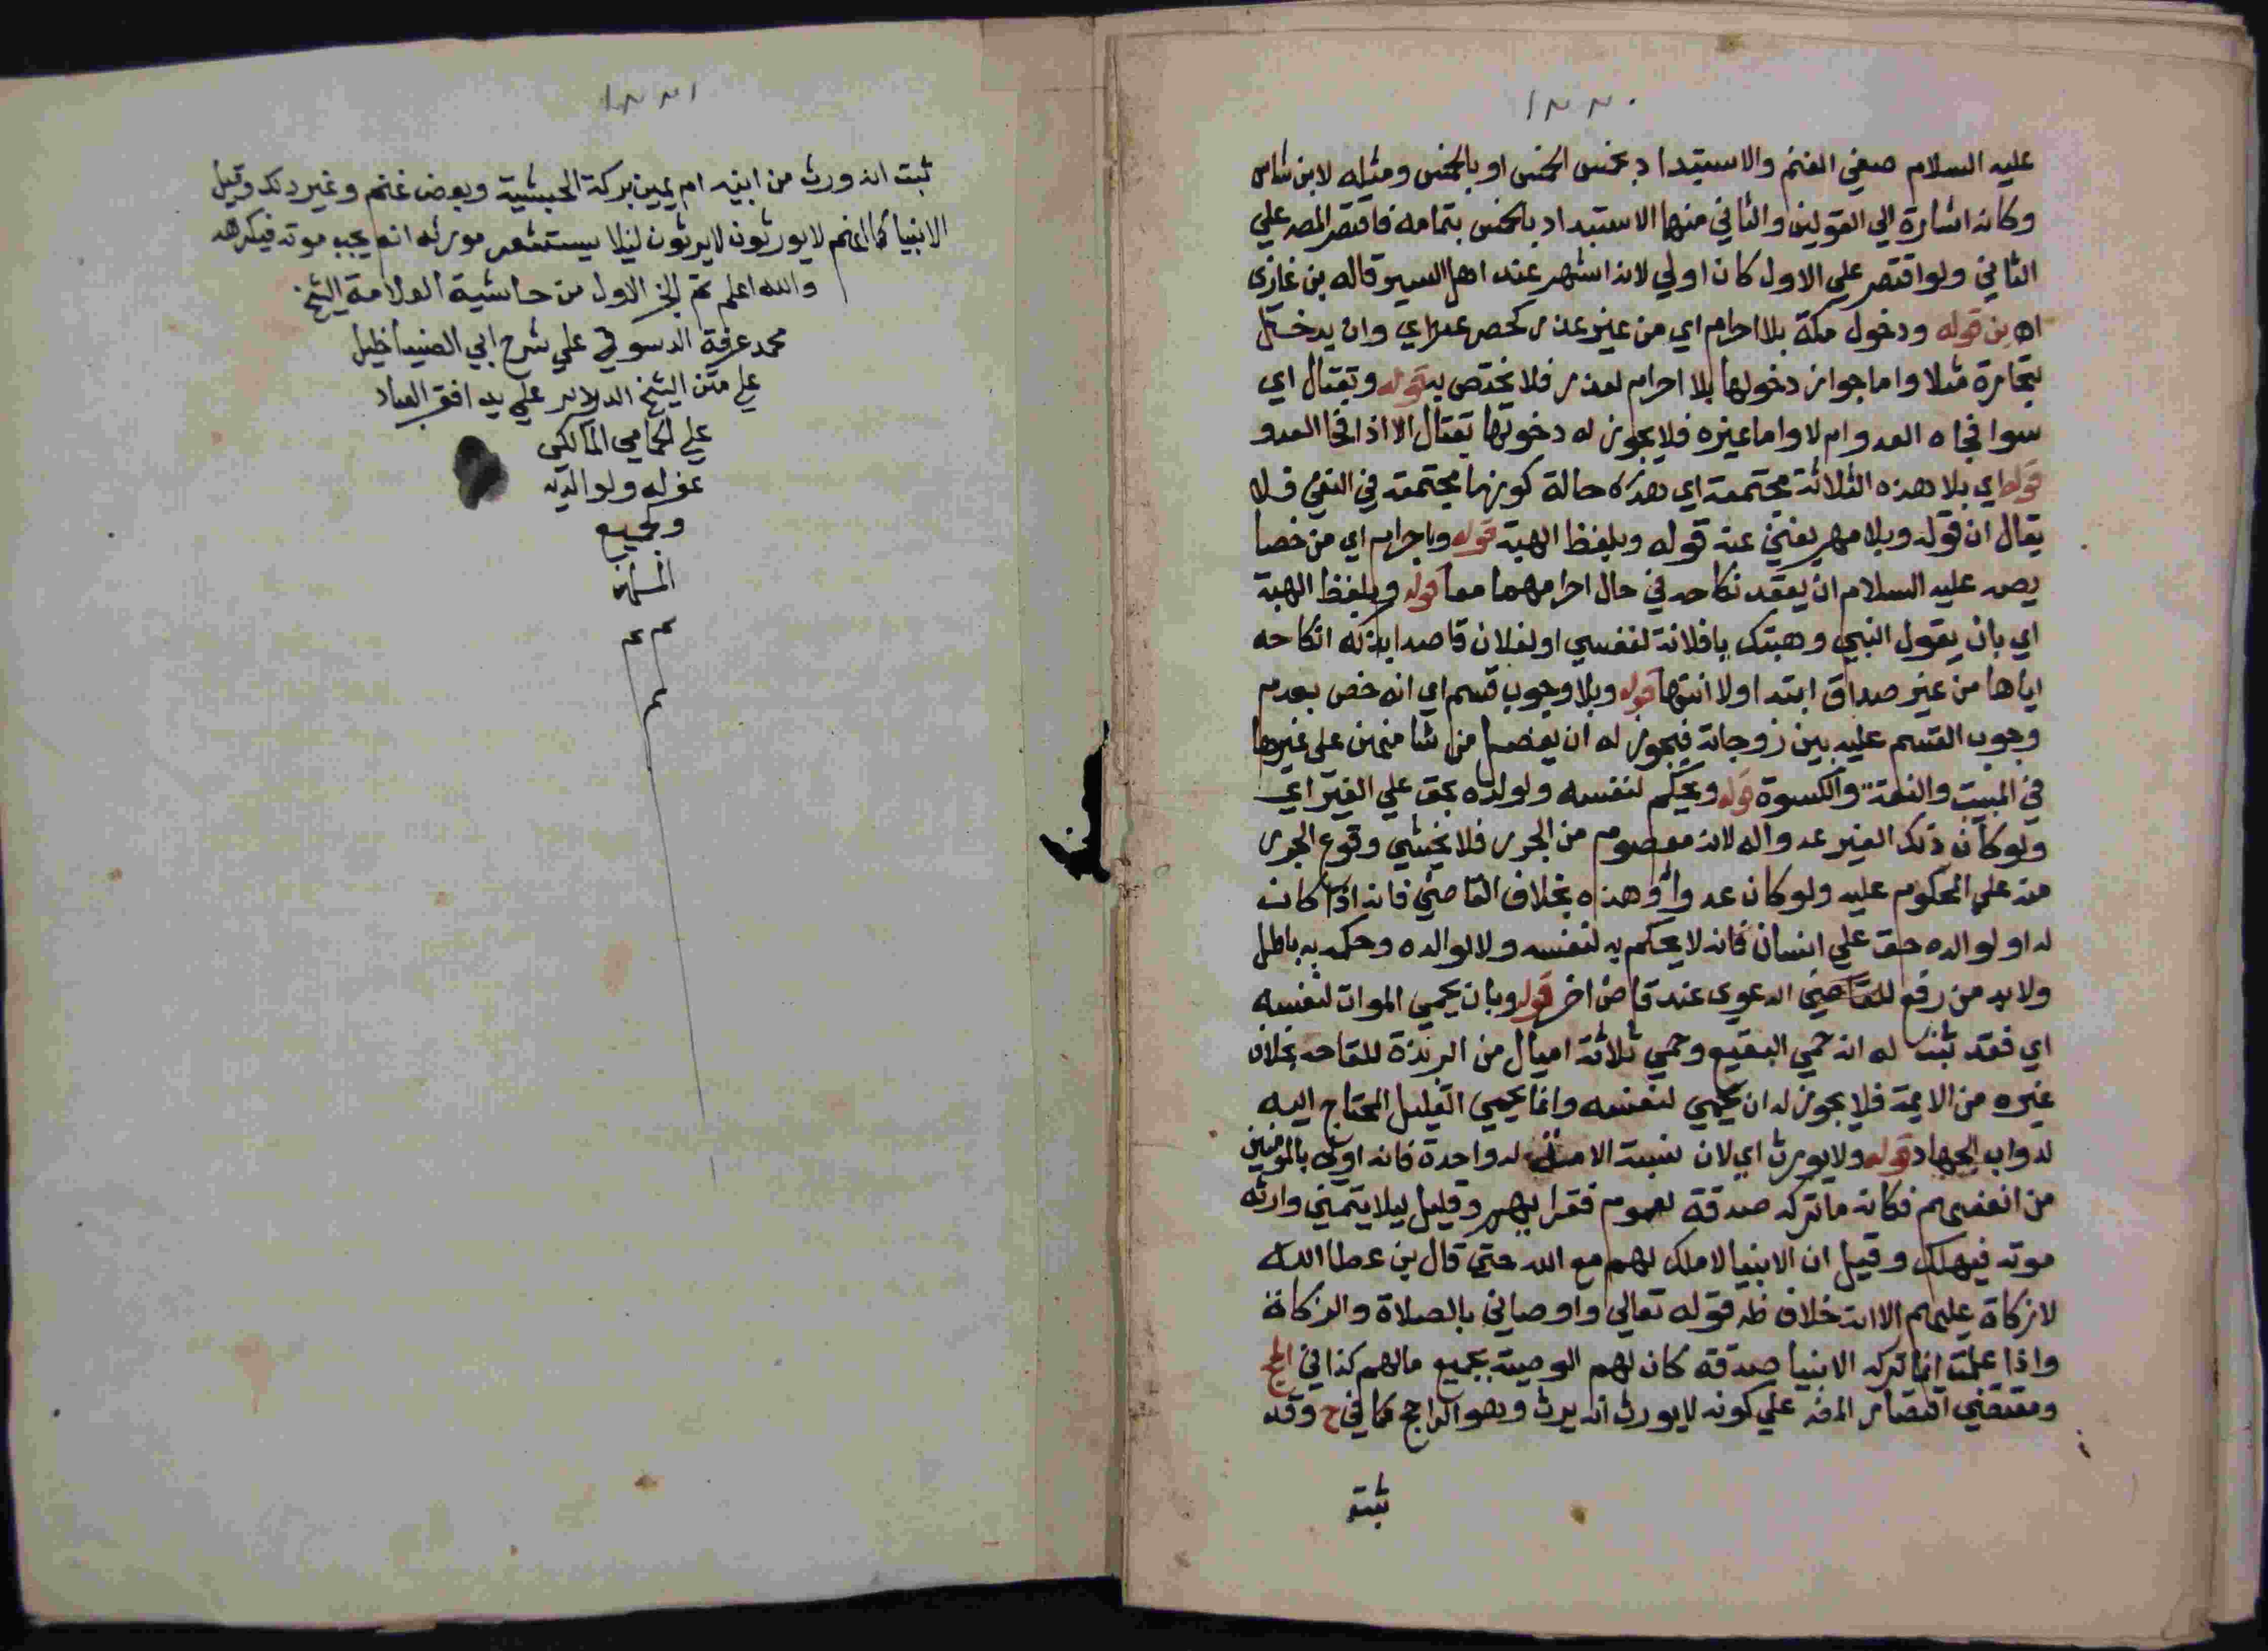 ١٣٣٠
عليه السلام صفي المغنم والاستبداد بخمس الخمس او بالخمس ومثله لابن شاس
وكانه اشارة الي القولين والثاني منهما الاستبداد بالخمس بتمامه فاقتصر المص علي
الثاني ولو اقتصر علي الاول كان اولي لانه اشهر عند اهل السير قاله بن غازي
اه بن قوله ودخول مكة بلا احرام اي من غير عذر كحصر عدو اي وان يدخل
تجارة مثلا واما جواز دخولها بلا احرام لعذر فلا يختص به قوله وبقتال اي
سوا فجاه العدو ام لا واما غيره فلا يجوز له دخولها بقتال الا اذا فجا العدو
قوله اي بلا هذه الثلاثة مجتمعة اي هذه حالة كونها مجتمعة في النفي فلا
يقال ان قوله وبلا مهر يغني عنه قوله وبلفظ الهبة قوله وباحرام اي من خصا
يصه عليه السلام ان يعقد نكاحه في حال احرامهما معا قوله وبلفظ الهبة
اي بان يقول النبي وهبتك يا فلانة لنفسي او لفلان قاصدا بذلك انكاحه
اياها من غير صداق ابتدا ولا انتها قوله وبلا وجوب قسم اي انه خص بعدم
وجوب القسم عليه بين زوجاته فيجوز له ان يفضل من شا منهن علي غيرها
في المبيت والنفقة والكسوة قوله ويحكم لنفسه ولولده بحق علي الغير اي
ولو كان ذلك الغير عدوا له لانه معصوم من الجور فلا يخشي وقوع الجور
منه علي المحكوم عليه ولو كان عدوا وهذه بخلاف القاضي فانه اذا كان
له او لوالده حق علي انسان فانه لا يحكم به لنفسه ولا لوالده وحكمه به باطل
ولابد من رفع للقاضي الدعوي عند قاض اخر قوله وبان يحمي الموات لنفسه
اي فقد ثبت له انه حمي البقيع وحمي ثلاثة اميال من الربذة للقاحه بخلاف
غيره من الايمة فلا يجوز له ان يحمي لنفسه وانما يحمي القليل المحتاج اليه
لدواب الجهاد قوله ولا يورث اي لان نسبة الامة له واحدة فانه اولي بالمومنين
من انفسهم فكان ما تركه صدقة لعموم فقرايهم وقيل ليلا يتمني وارثه
موته فيهلك وقيل ان الانبيا لا ملك لهم مع الله حتي قال بن عطا الله
لا زكاة عليهم الا انه خلاف ظ قوله تعالي واوصاني بالصلاة والزكاة
واذا علمت ان ما تركه الانبيا صدقة كان لهم الوصية بجميع مالهم كذا في المج
ومقتضي اقتصار المص علي كونه لا يورث انه يرث وهو الراجح كما في ح وقد
ثبت
١٣٣١
ثبت انه ورث من ابيه ام يمين بركة الحبشية وبعض غنم وغير ذلك وقيل
الانبيا كما انهم لا يورثون لا يرثون ليلا يستشعر مورثه انه يحب موته فيكرهه
والله اعلم تم الجز الاول من حاشية العلامة الشيخ
محمد عرفة الدسوقي علي شرح ابي الضيا خليل
علي متن الشيخ الدردير علي يد افقر العباد
علي المالكي
غفر له ولوالديه
وجميع
المسلمين